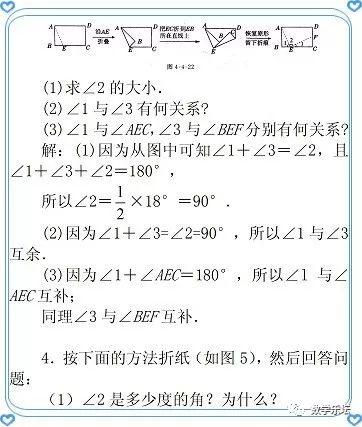 A D 沿AE 折叠 A D 把EC折到EB 所在直线上 A D 恢复原形 留下折痕 A D
B E C B E C E B E C F
1 2 3
图4-4-22
(1)求∠2的大小.
(2)∠1与∠3有何关系?
(3)∠1与∠AEC,∠3与∠BEF分别有何关系?
解：(1)因为从图中可知∠1+∠3=∠2，且
∠1+∠3+∠2=180°，
所以∠2=1/2×18°=90°.
(2)因为∠1+∠3=∠2=90°，所以∠1与∠3
互余.
(3)因为∠1+∠AEC=180°，所以∠1与∠
AEC互补；
同理∠3与∠BEF互补.
4.按下面的方法折纸(如图5)，然后回答问
题：
(1)∠2是多少度的角？为什么？
一数学乐坛